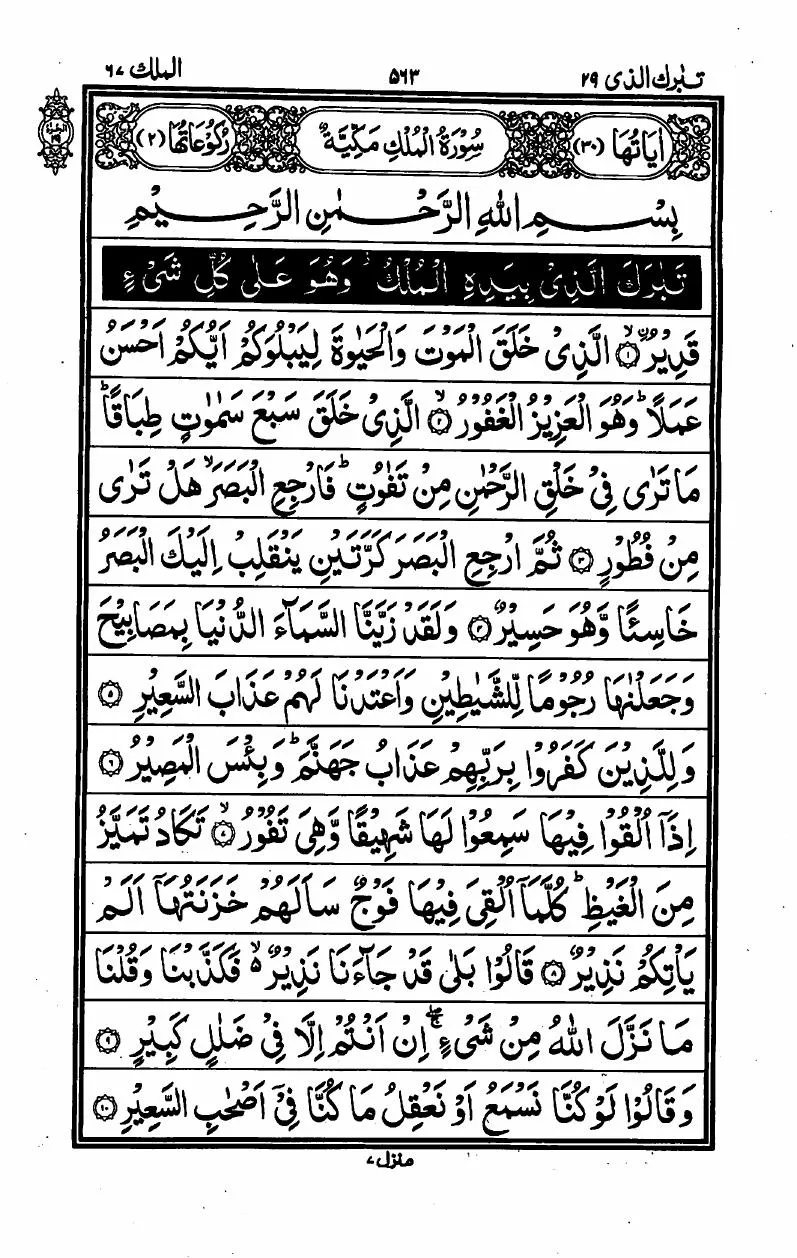 تبٰرك الذی ۲۹ ۵۶۳ الملك ۶۷
اٰيَاتُهَا (۳۰) سُوْرَةُ الْمُلْكِ مَكِّيَّةٌ رُكُوْعَاتُهَا (۲)
بِسْمِ اللّٰهِ الرَّحْمٰنِ الرَّحِيْمِ
تَبٰرَكَ الَّذِىْ بِيَدِهِ الْمُلْكُ ۫ وَهُوَ عَلٰى كُلِّ شَىْءٍ
قَدِيْرُ ۨ ۙ‏﴿۱﴾ الَّذِىْ خَلَقَ الْمَوْتَ وَالْحَيٰوةَ لِيَبْلُوَكُمْ اَيُّكُمْ اَحْسَنُ
عَمَلًا ؕ وَهُوَ الْعَزِيْزُ الْغَفُوْرُ ۙ‏﴿۲﴾ الَّذِىْ خَلَقَ سَبْعَ سَمٰوٰتٍ طِبَاقًا ؕ
مَا تَرٰى فِىْ خَلْقِ الرَّحْمٰنِ مِنْ تَفٰوُتٍ ؕ فَارْجِعِ الْبَصَرَ ۙ هَلْ تَرٰى
مِنْ فُطُوْرٍ ﴿۳﴾ ثُمَّ ارْجِعِ الْبَصَرَ كَرَّتَيْنِ يَنْقَلِبْ اِلَيْكَ الْبَصَرُ
خَاسِئًا وَّهُوَ حَسِيْرٌ ﴿۴﴾ وَلَقَدْ زَيَّنَّا السَّمَآءَ الدُّنْيَا بِمَصَابِيْحَ
وَجَعَلْنٰهَا رُجُوْمًا لِّلشَّيٰطِيْنِ وَاَعْتَدْنَا لَهُمْ عَذَابَ السَّعِيْرِ ﴿۵﴾
وَلِلَّذِيْنَ كَفَرُوْا بِرَبِّهِمْ عَذَابُ جَهَنَّمَ ؕ وَبِئْسَ الْمَصِيْرُ ﴿۶﴾
اِذَاۤ اُلْقُوْا فِيْهَا سَمِعُوْا لَهَا شَهِيْقًا وَّهِىَ تَفُوْرُ ۙ‏﴿۷﴾ تَكَادُ تَمَيَّزُ
مِنَ الْغَيْظِ ؕ كُلَّمَاۤ اُلْقِىَ فِيْهَا فَوْجٌ سَاَلَهُمْ خَزَنَتُهَاۤ اَلَمْ
يَاْتِكُمْ نَذِيْرٌ ﴿۸﴾ قَالُوْا بَلٰى قَدْ جَآءَنَا نَذِيْرٌ ۙ۬ فَكَذَّبْنَا وَقُلْنَا
مَا نَزَّلَ اللّٰهُ مِنْ شَىْءٍ ۖۚ اِنْ اَنْتُمْ اِلَّا فِىْ ضَلٰلٍ كَبِيْرٍ ﴿۹﴾
وَقَالُوْا لَوْ كُنَّا نَسْمَعُ اَوْ نَعْقِلُ مَا كُنَّا فِىْۤ اَصْحٰبِ السَّعِيْرِ ﴿۱۰﴾
منزل ۷